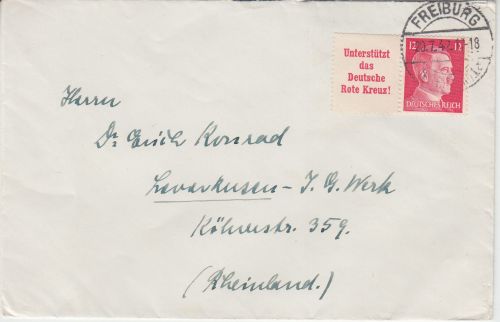 FREIBURG
Unterstützt
das
Deutsche
Rote Kreuz!
12 12
DEUTSCHES REICH
Herrn
Dr. Erich Konrad
Leverkusen - I. G. Werk
359.
(Rheinland.)